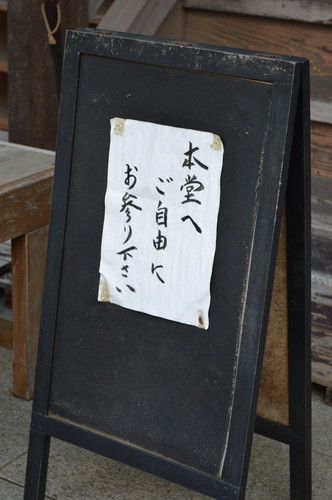 本堂へ
ご自由に
お参り下さい